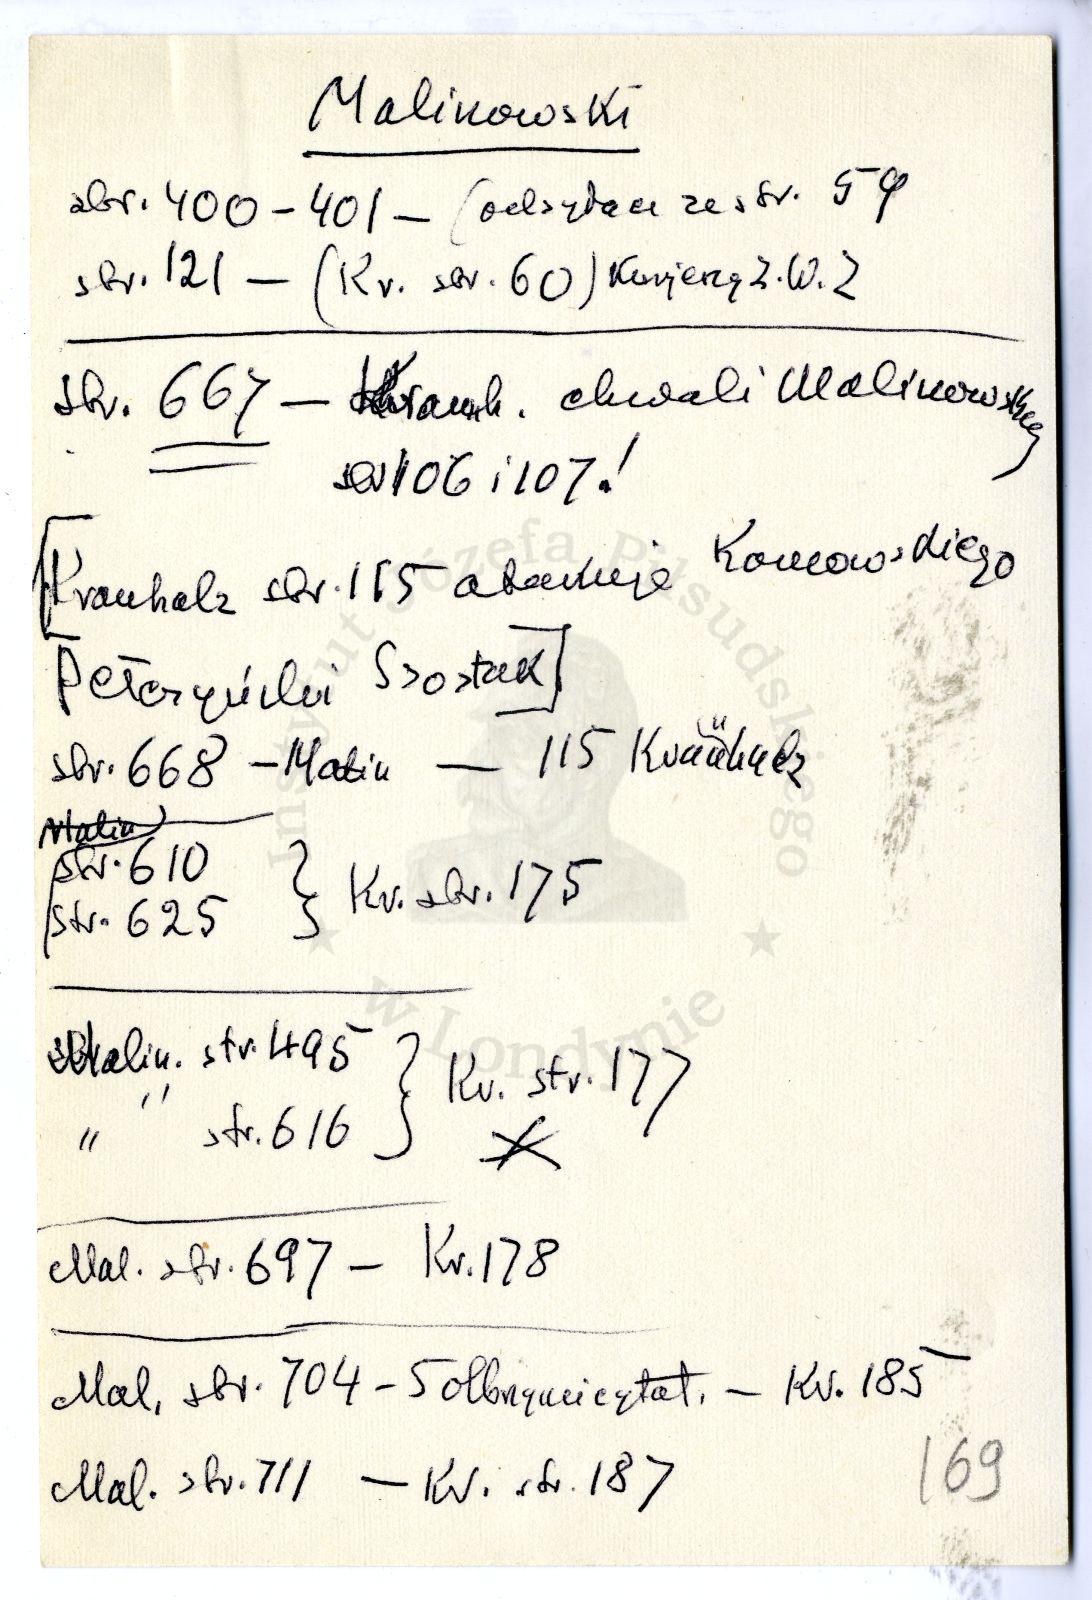 Malinowski
str. 400 - 401 - (odsyłacz ze str. 59
str. 121 - (Kr. str. 60) Kurjerzy Z.W.Z
str. 667 - Kranh. chwali Malinowskiego
str 106 i 107!
[Kranhalz str. 115 atakuje Komorowskiego
Pełczyński Szostak]
str. 668 - Malin - 115 Kranhalz
Malin
str. 610
str. 625 } Kr. str. 175
Malin. str. 495
" " str. 616 } Kr. str. 177
Mal. str. 697 - Kr. 178
Mal. str. 704 - Olbrzymi cytat. - Kr. 185
Mal. str. 711 - Kr. str. 187
169
Instytut Józefa Piłsudskiego
★ w Londynie ★